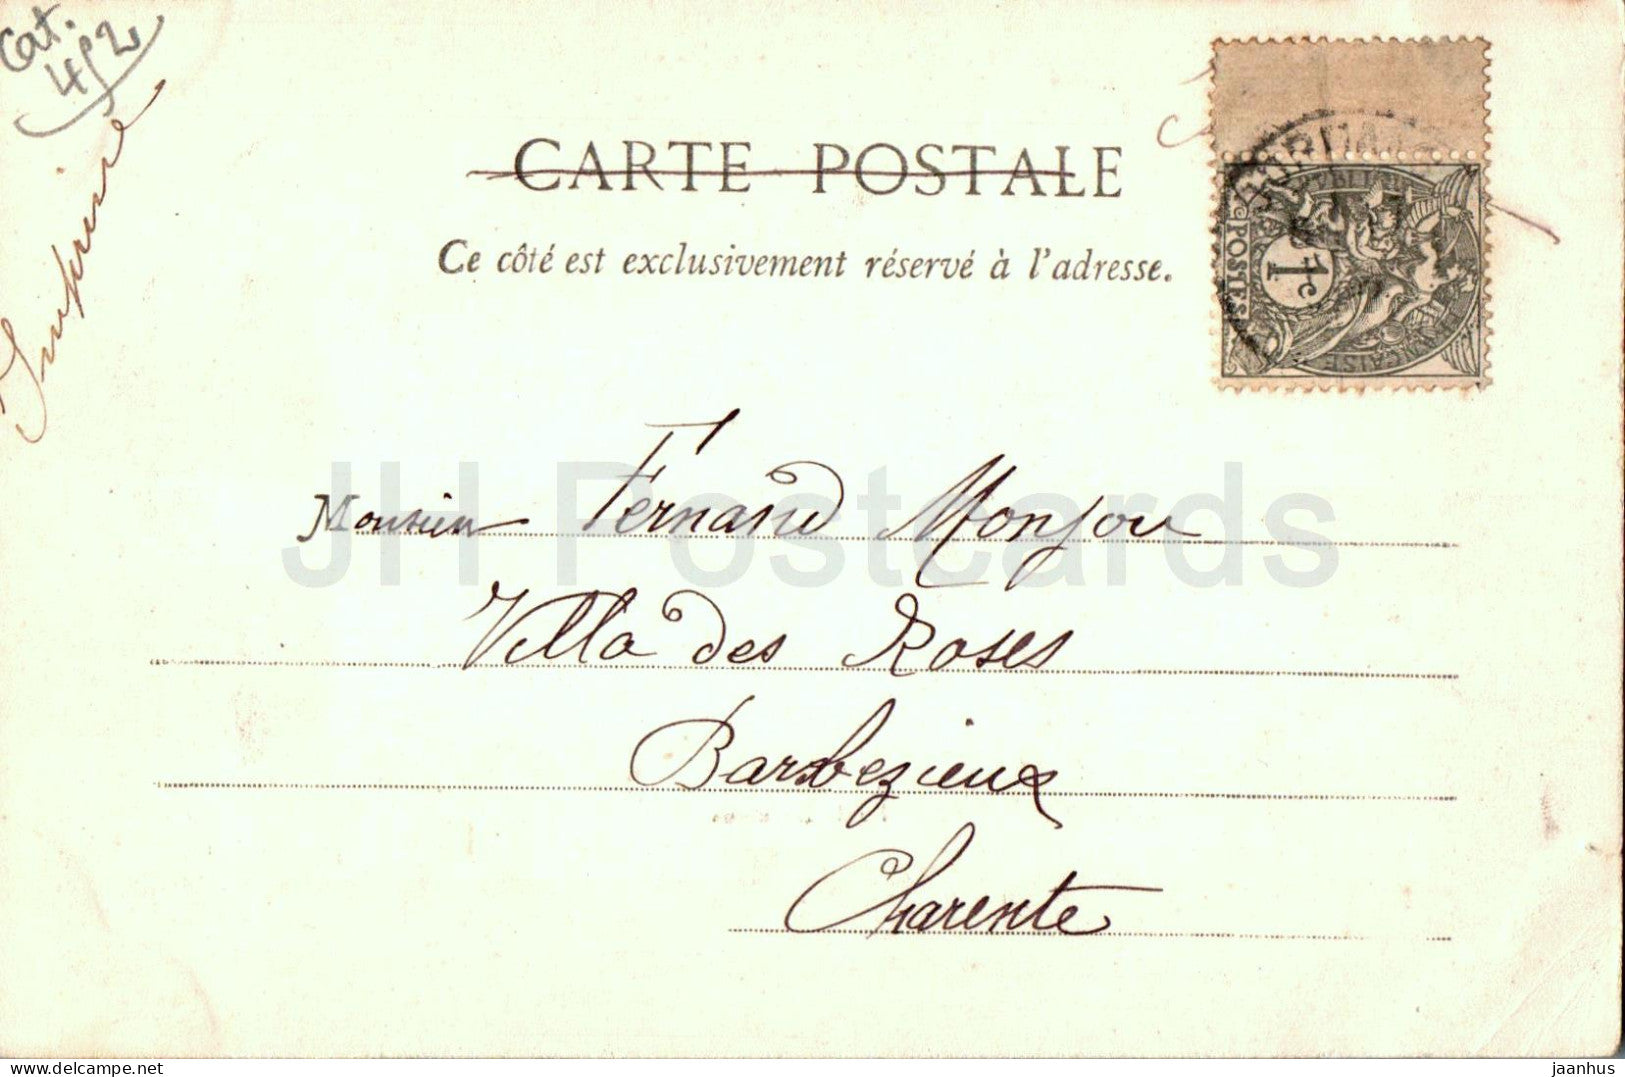 Cat.
452
Imprimé
CARTE POSTALE
Ce côté est exclusivement réservé à l'adresse.
POSTES
1c
Monsieur Fernand Monjou
Villa des Roses
Barbezieux
Charente
JH Postcards
delcampe.net
jaanhus